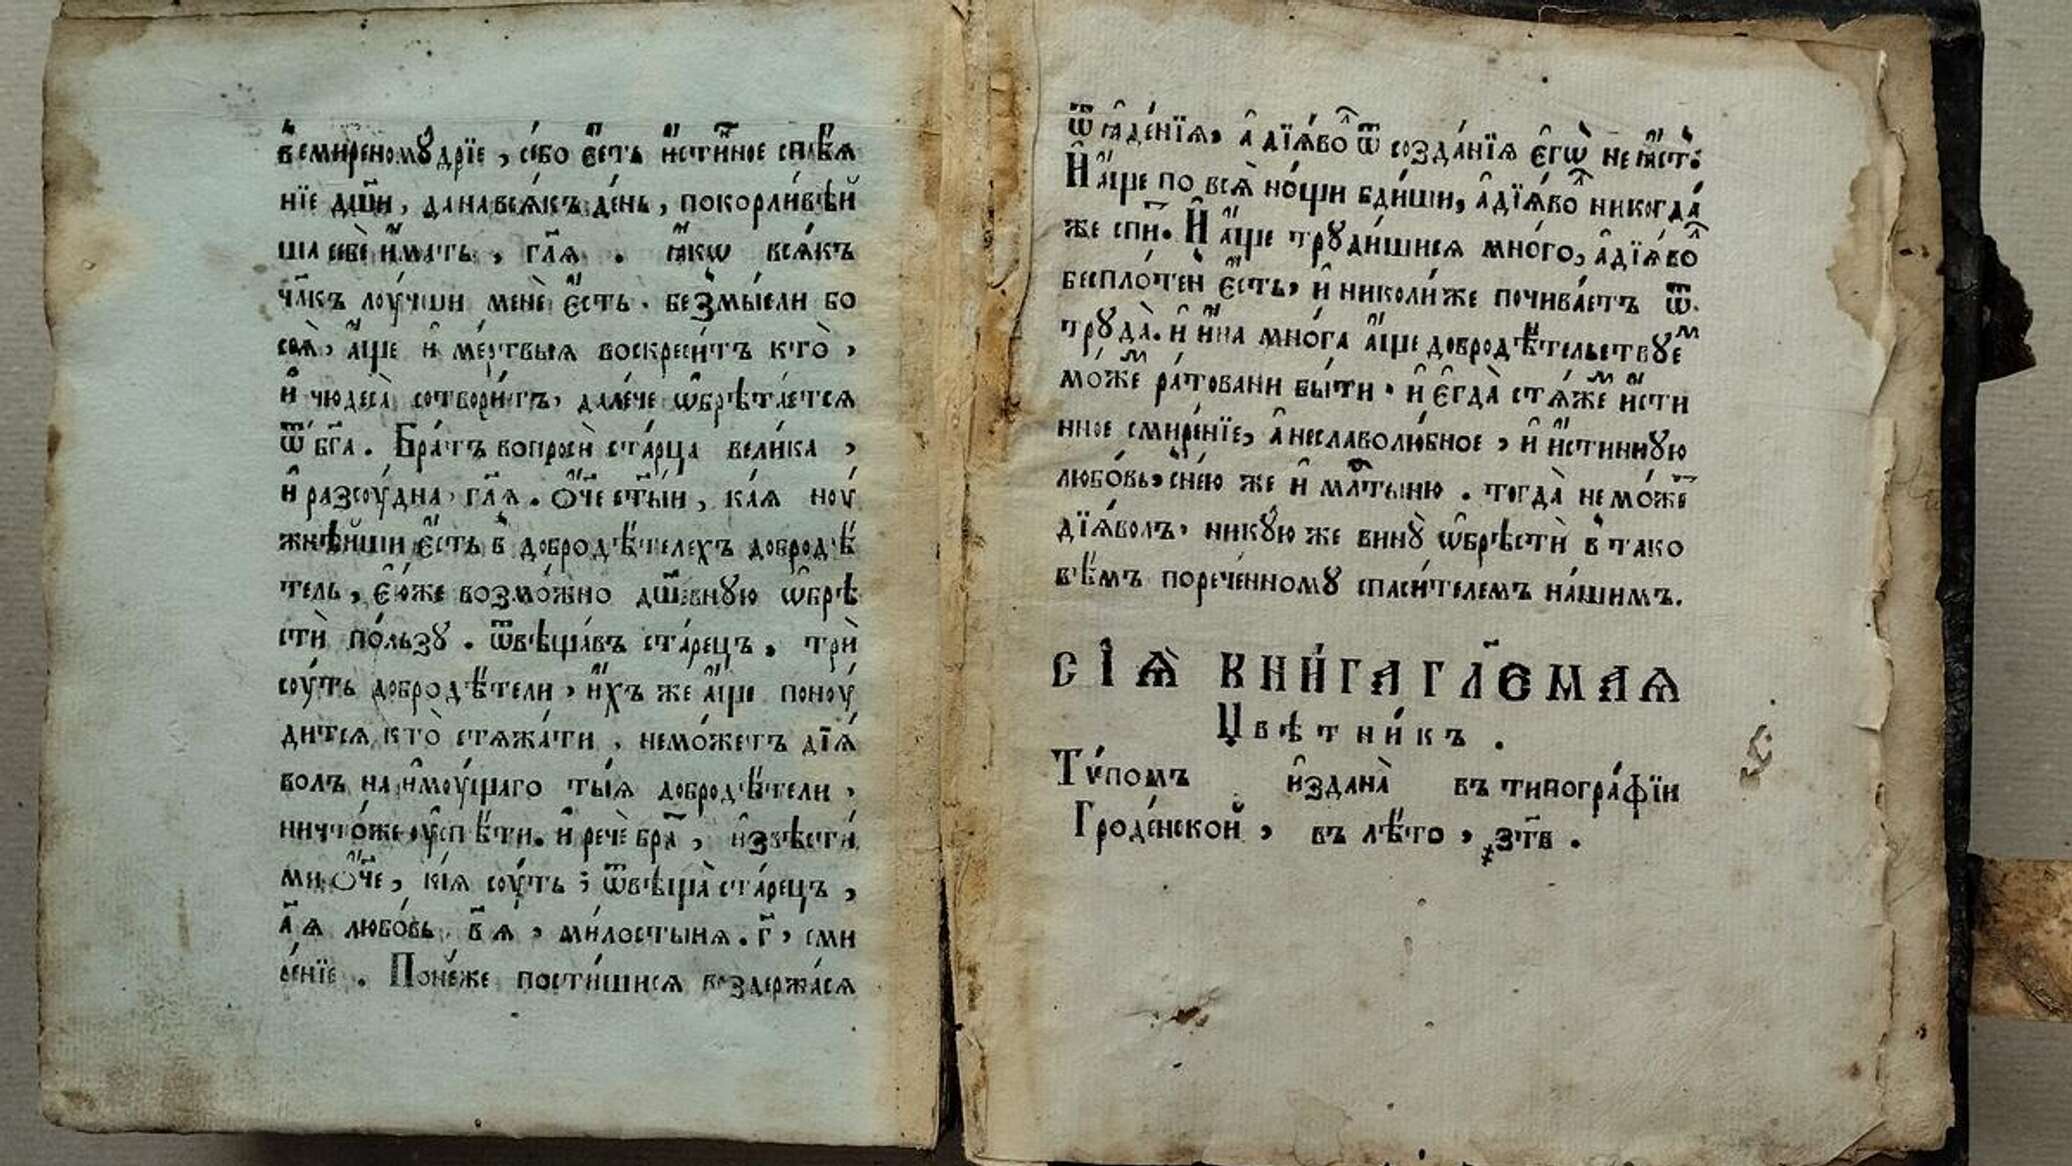 в̾смиреномꙋ́дрїе, се́бо є҆́сть и҆́стинное спⷭ҇е́
нїе дш҃и, да на всѧ́къ де́нь, покорли́вѣй
ша себѐ и҆́мать, гл҃ѧ. ꙗ҆́кѡ всѧ́къ
чл҃къ лоу́чши менѐ є҆́сть. без̾мы́сли бо
сеѧ̀, а҆́ще и҆ ме́ртвыѧ воскреси́тъ кто̀,
и҆ чюдеса̀ сотвори́тъ, дале́че ѡ҆брѣта́етсѧ
ѿ бг҃а. Бра́тъ вопросѝ ста́рца вели́ка,
и҆ разсоу́дна, гл҃ѧ. ѻ҆́ч҃е ст҃ы́и, ка́ѧ ноу́
жнѣ́йши є҆́сть в̾ добродѣ́телехъ добродѣ́
тель, є҆ю́же возмо́жно дш҃е́вную ѡ҆брѣ
стѝ по́льзꙋ. ѿвѣща́въ ста́рецъ. трѝ
соу́ть добродѣ́тели, и҆́хъ же а҆́ще поноу́
дитсѧ кто̀ стѧжа́ти, немо́жетъ дїѧ́
волъ на и҆моу́щаго ты́ѧ добродѣ́тели,
ничто́же оу҆спѣ́ти. и҆ речѐ бра́т, и҆звѣсти́
ми ѻ҆́ч҃е, кі́ѧ соу́ть ; ѿвѣща̀ ста́рецъ,
а҃ѧ любо́вь, в҃ѧ, ми́лостынѧ. г҃, сми
ре́нїе. Поне́же пости́шисѧ воздержа́сѧ
ѿ ꙗ҆де́нїѧ, а҆ дїѧ́воⷧ ѿ созда́нїѧ є҆гѡ̀ не ꙗ҆́стъ.
И҆ а҆́ще по всѧ̀ но́щи бди́ши, а҆ дїѧ́воⷧ никогда́
же спи́т. И҆ а҆́ще трꙋди́шисѧ мно́го, а҆ дїѧ́воⷧ
беспло́тен є҆́сть, и҆ николи́же почива́етъ ѿ
трꙋда̀. и҆ и҆́на мно́га а҆́ще добродѣ́тельствꙋеⷨ
мо́жеⷨ ра́товани бы́ти. и҆ є҆гда̀ стѧ́жеⷨ и҆́сти
нное смире́нїе, а҆ неславолю́бное, и҆ и҆́стиннꙋю
любо́вь, с̾не́ю же и҆ мл҃тыню. тогда̀ не мо́жеⷮ
дїѧ́волъ, никꙋ́ю же винꙋ̀ ѡ҆брѣстѝ в̾ тако
вѣ́мъ порече́нномꙋ спаси́телемъ на́шимъ.
СІѦ̀ КНИ́ГА ГЛ҃ЕМАѦ
Цвѣтни́къ.
Тѵ́помъ и҆здана̀ въ типогра́фїи
Гроде́нской, въ лѣ́то, ҂зт҃в.